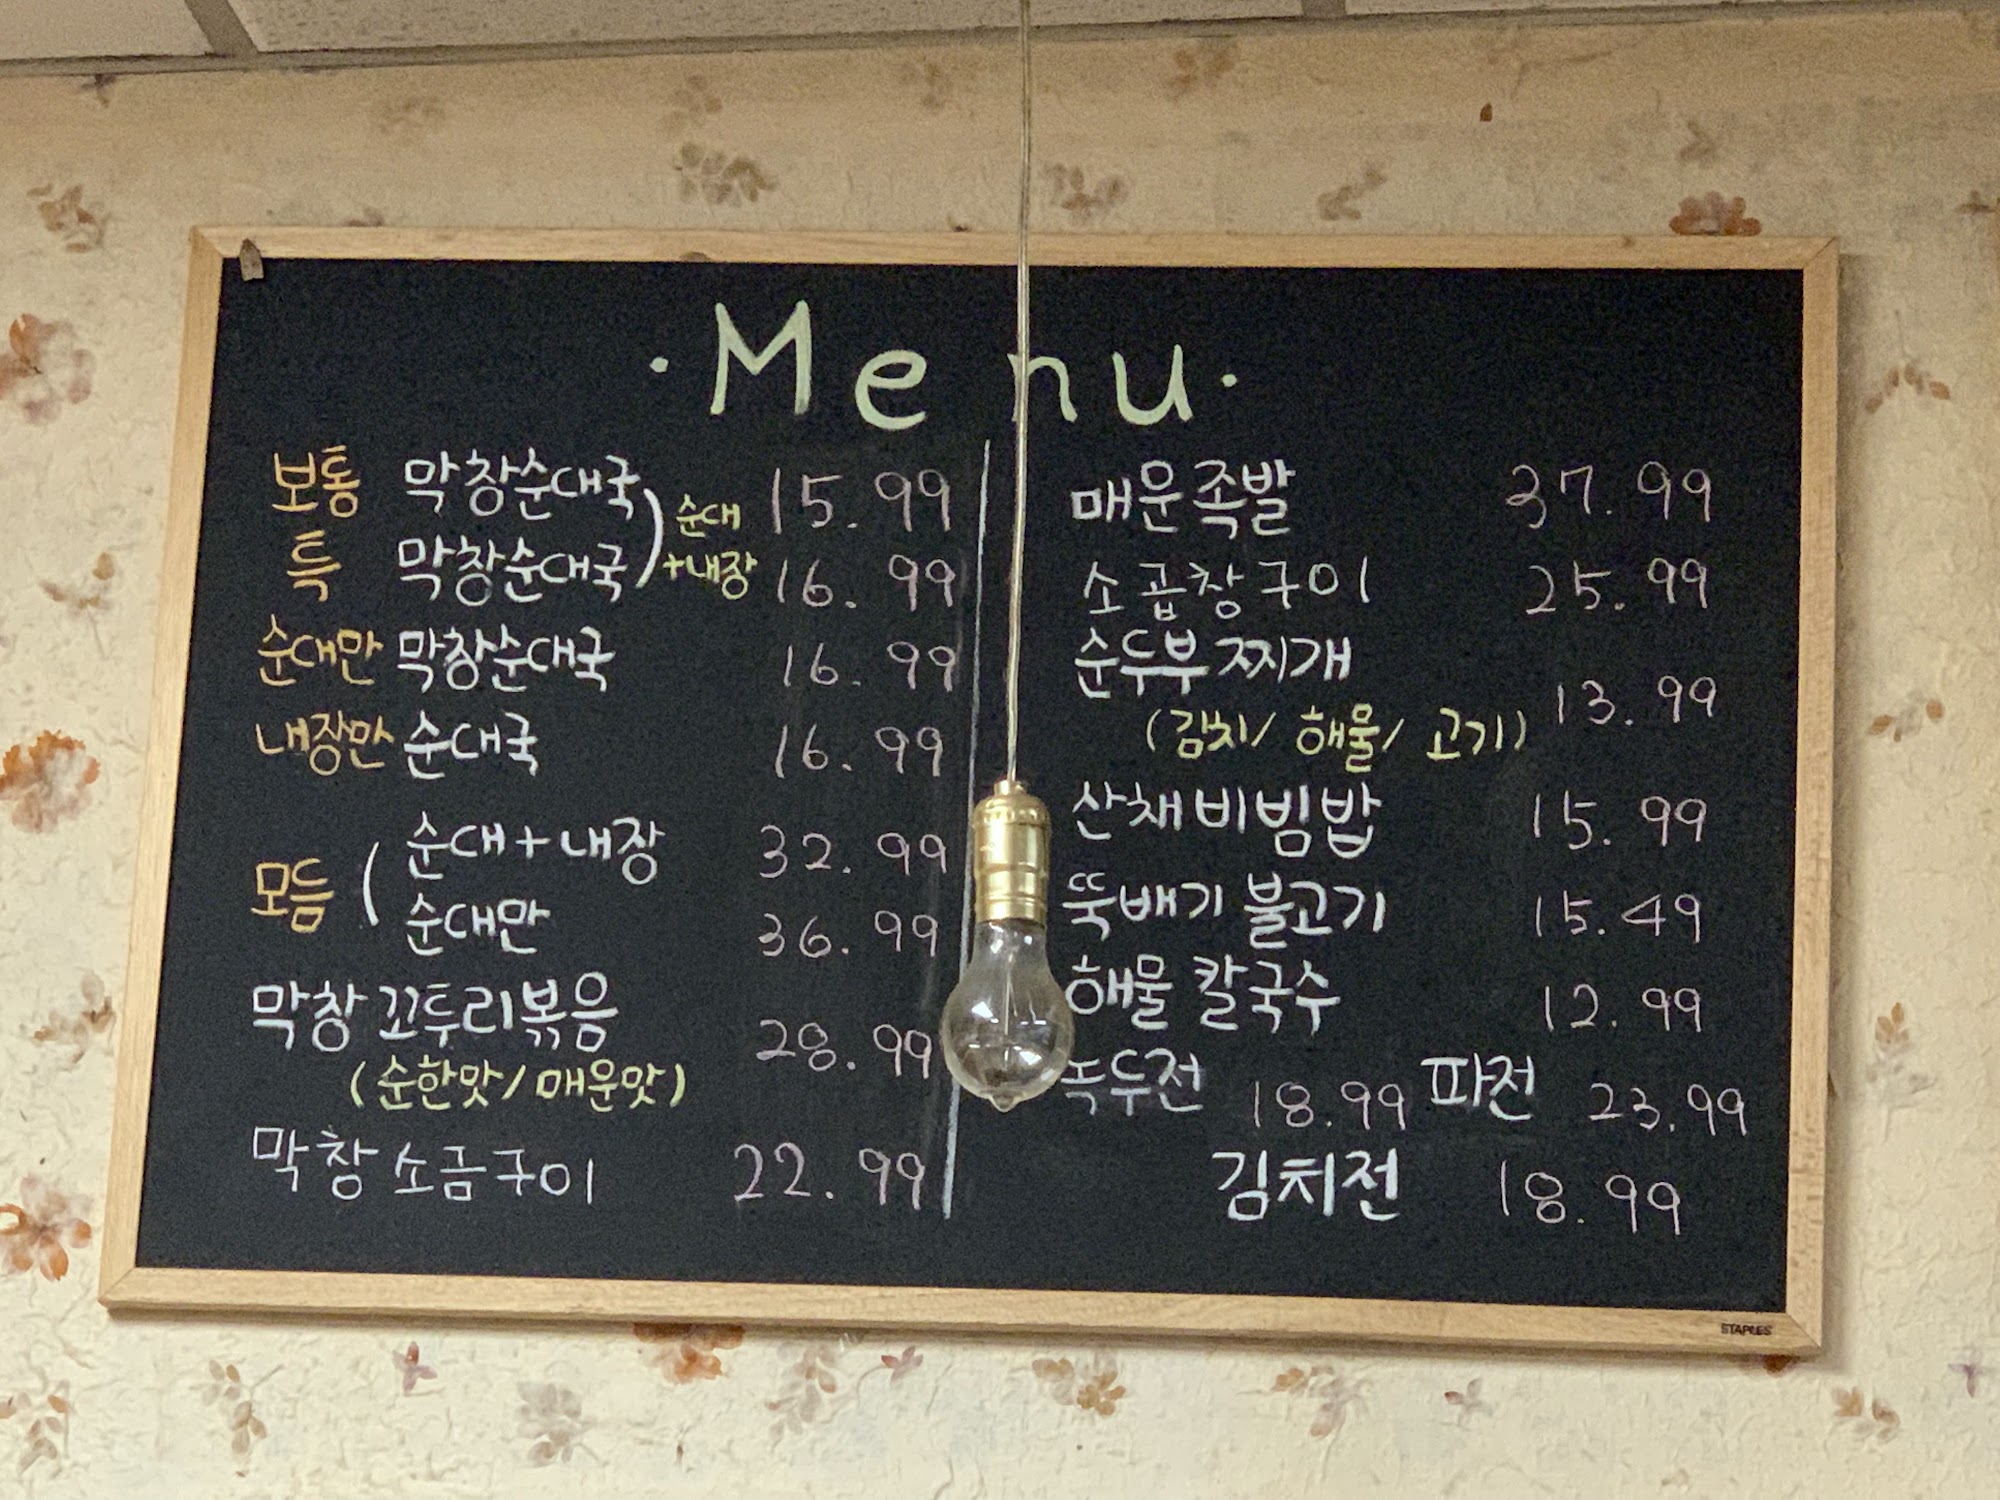 ·Menu·
보통 막창순대국 ) 순대 15.99
특 막창순대국 +내장 16.99
순대만 막창순대국 16.99
내장만 순대국 16.99
모듬 ( 순대+내장 32.99
순대만 36.99
막창 꼬투리볶음 28.99
(순한맛/매운맛)
막창 소금구이 22.99
매운족발 37.99
소곱창구이 25.99
순두부찌개 13.99
(김치/ 해물/ 고기)
산채비빔밥 15.99
뚝배기 불고기 15.49
해물 칼국수 12.99
녹두전 18.99 파전 23.99
김치전 18.99
STAPLES